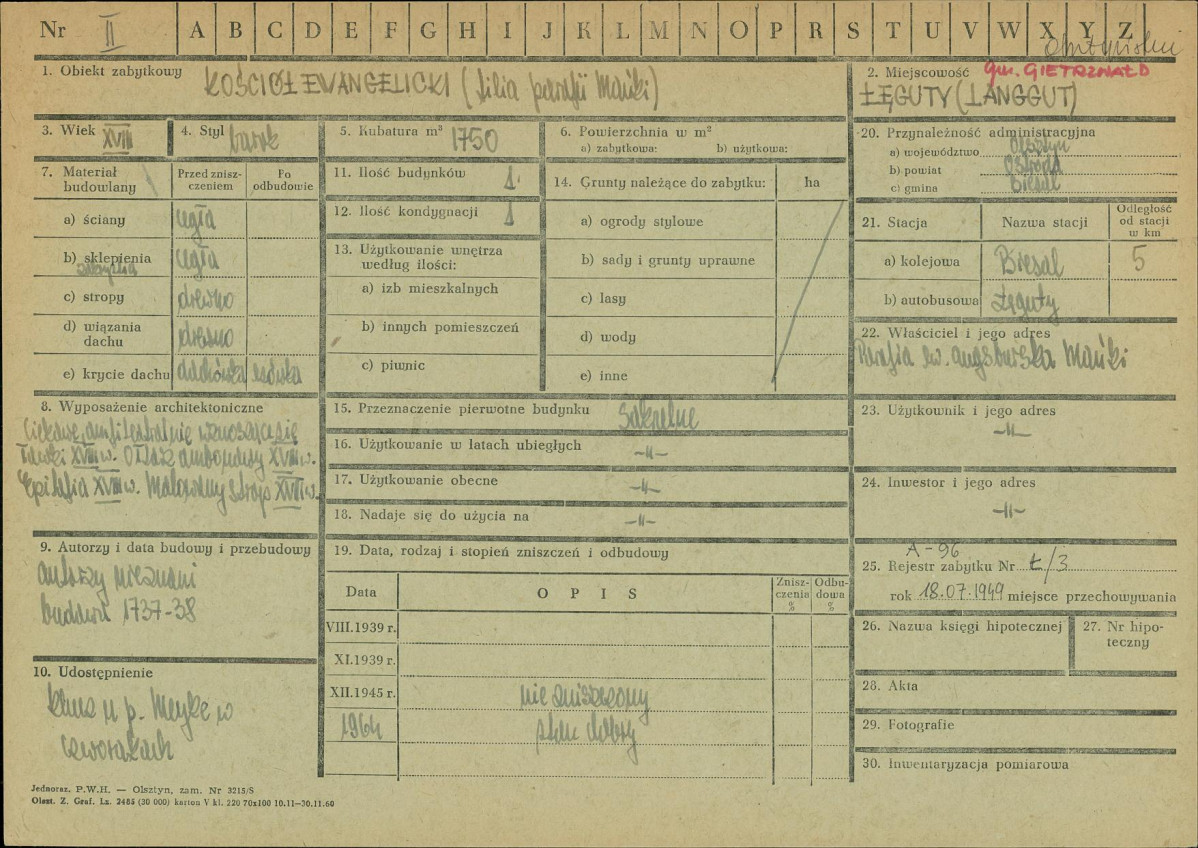 Nr II A B C D E F G H I J K L M N O P R S T U V W X Y Z
1. Obiekt zabytkowy KOŚCIÓŁ EWANGELICKI (filia parafii Mańki)
2. Miejscowość gm. GIETRZWAŁD
ŁĘGUTY (LANGGUT)
3. Wiek XVIII
4. Styl barok
5. Kubatura m³ 1750
6. Powierzchnia w m²
a) zabytkowa: b) użytkowa:
7. Materiał budowlany
Przed znisz-
czeniem
Po
odbudowie
a) ściany cegła
b) sklepienia cegła
zakrystia
c) stropy drewno
d) wiązania
dachu drewno
e) krycie dachu dachówka esówka
8. Wyposażenie architektoniczne
Ciekawe, amfiteatralnie wznoszące się
ławki XVIII w. Ołtarz ambonowy XVIII w.
Epitafia XVIII w. Malowany strop XVIII w.
9. Autorzy i data budowy i przebudowy
autorzy nieznani
budowa 1737-38
10. Udostępnienie
klucz u p. Meyke w
czworakach
11. Ilość budynków 1
12. Ilość kondygnacji 1
13. Użytkowanie wnętrza
według ilości:
a) izb mieszkalnych
b) innych pomieszczeń
c) piwnic
14. Grunty należące do zabytku: ha
a) ogrody stylowe
b) sady i grunty uprawne
c) lasy
d) wody
e) inne
15. Przeznaczenie pierwotne budynku sakralne
16. Użytkowanie w latach ubiegłych -"-
17. Użytkowanie obecne -"-
18. Nadaje się do użycia na -"-
19. Data, rodzaj i stopień zniszczeń i odbudowy
Data OPIS Znisz-
czenia
% Odbu-
dowa
%
VIII.1939 r.
XI.1939 r.
XII.1945 r. nie zniszczony
1964 stan dobry
20. Przynależność administracyjna
a) województwo Olsztyn
b) powiat Ostróda
c) gmina Biesal
21. Stacja Nazwa stacji Odległość
od stacji
w km
a) kolejowa Biesal 5
b) autobusowa Łęguty
22. Właściciel i jego adres
Parafia ew. augsburska Mańki
23. Użytkownik i jego adres
-"-
24. Inwestor i jego adres
-"-
A-96
25. Rejestr zabytku Nr Ł/3
rok 18.07.1949 miejsce przechowywania
26. Nazwa księgi hipotecznej
27. Nr hipo-
teczny
28. Akta
29. Fotografie
30. Inwentaryzacja pomiarowa
Jednoraz. P.W.H. — Olsztyn, zam. Nr 3215/S
Olszt. Z. Graf. Lz. 2485 (30 000) karton V kl. 220 70x100 10.11—30.11.60